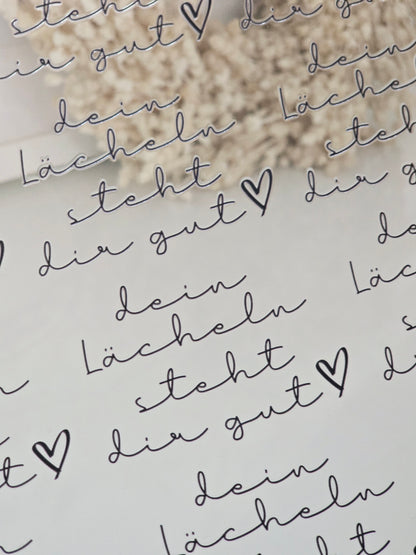 steht
dir gut ♡
dir gut
dein
Lächeln
steht
dir gut ♡
dein
Lächeln
steht
dir
dein
Lächeln
steht
dir gut ♡
dein
Lächeln